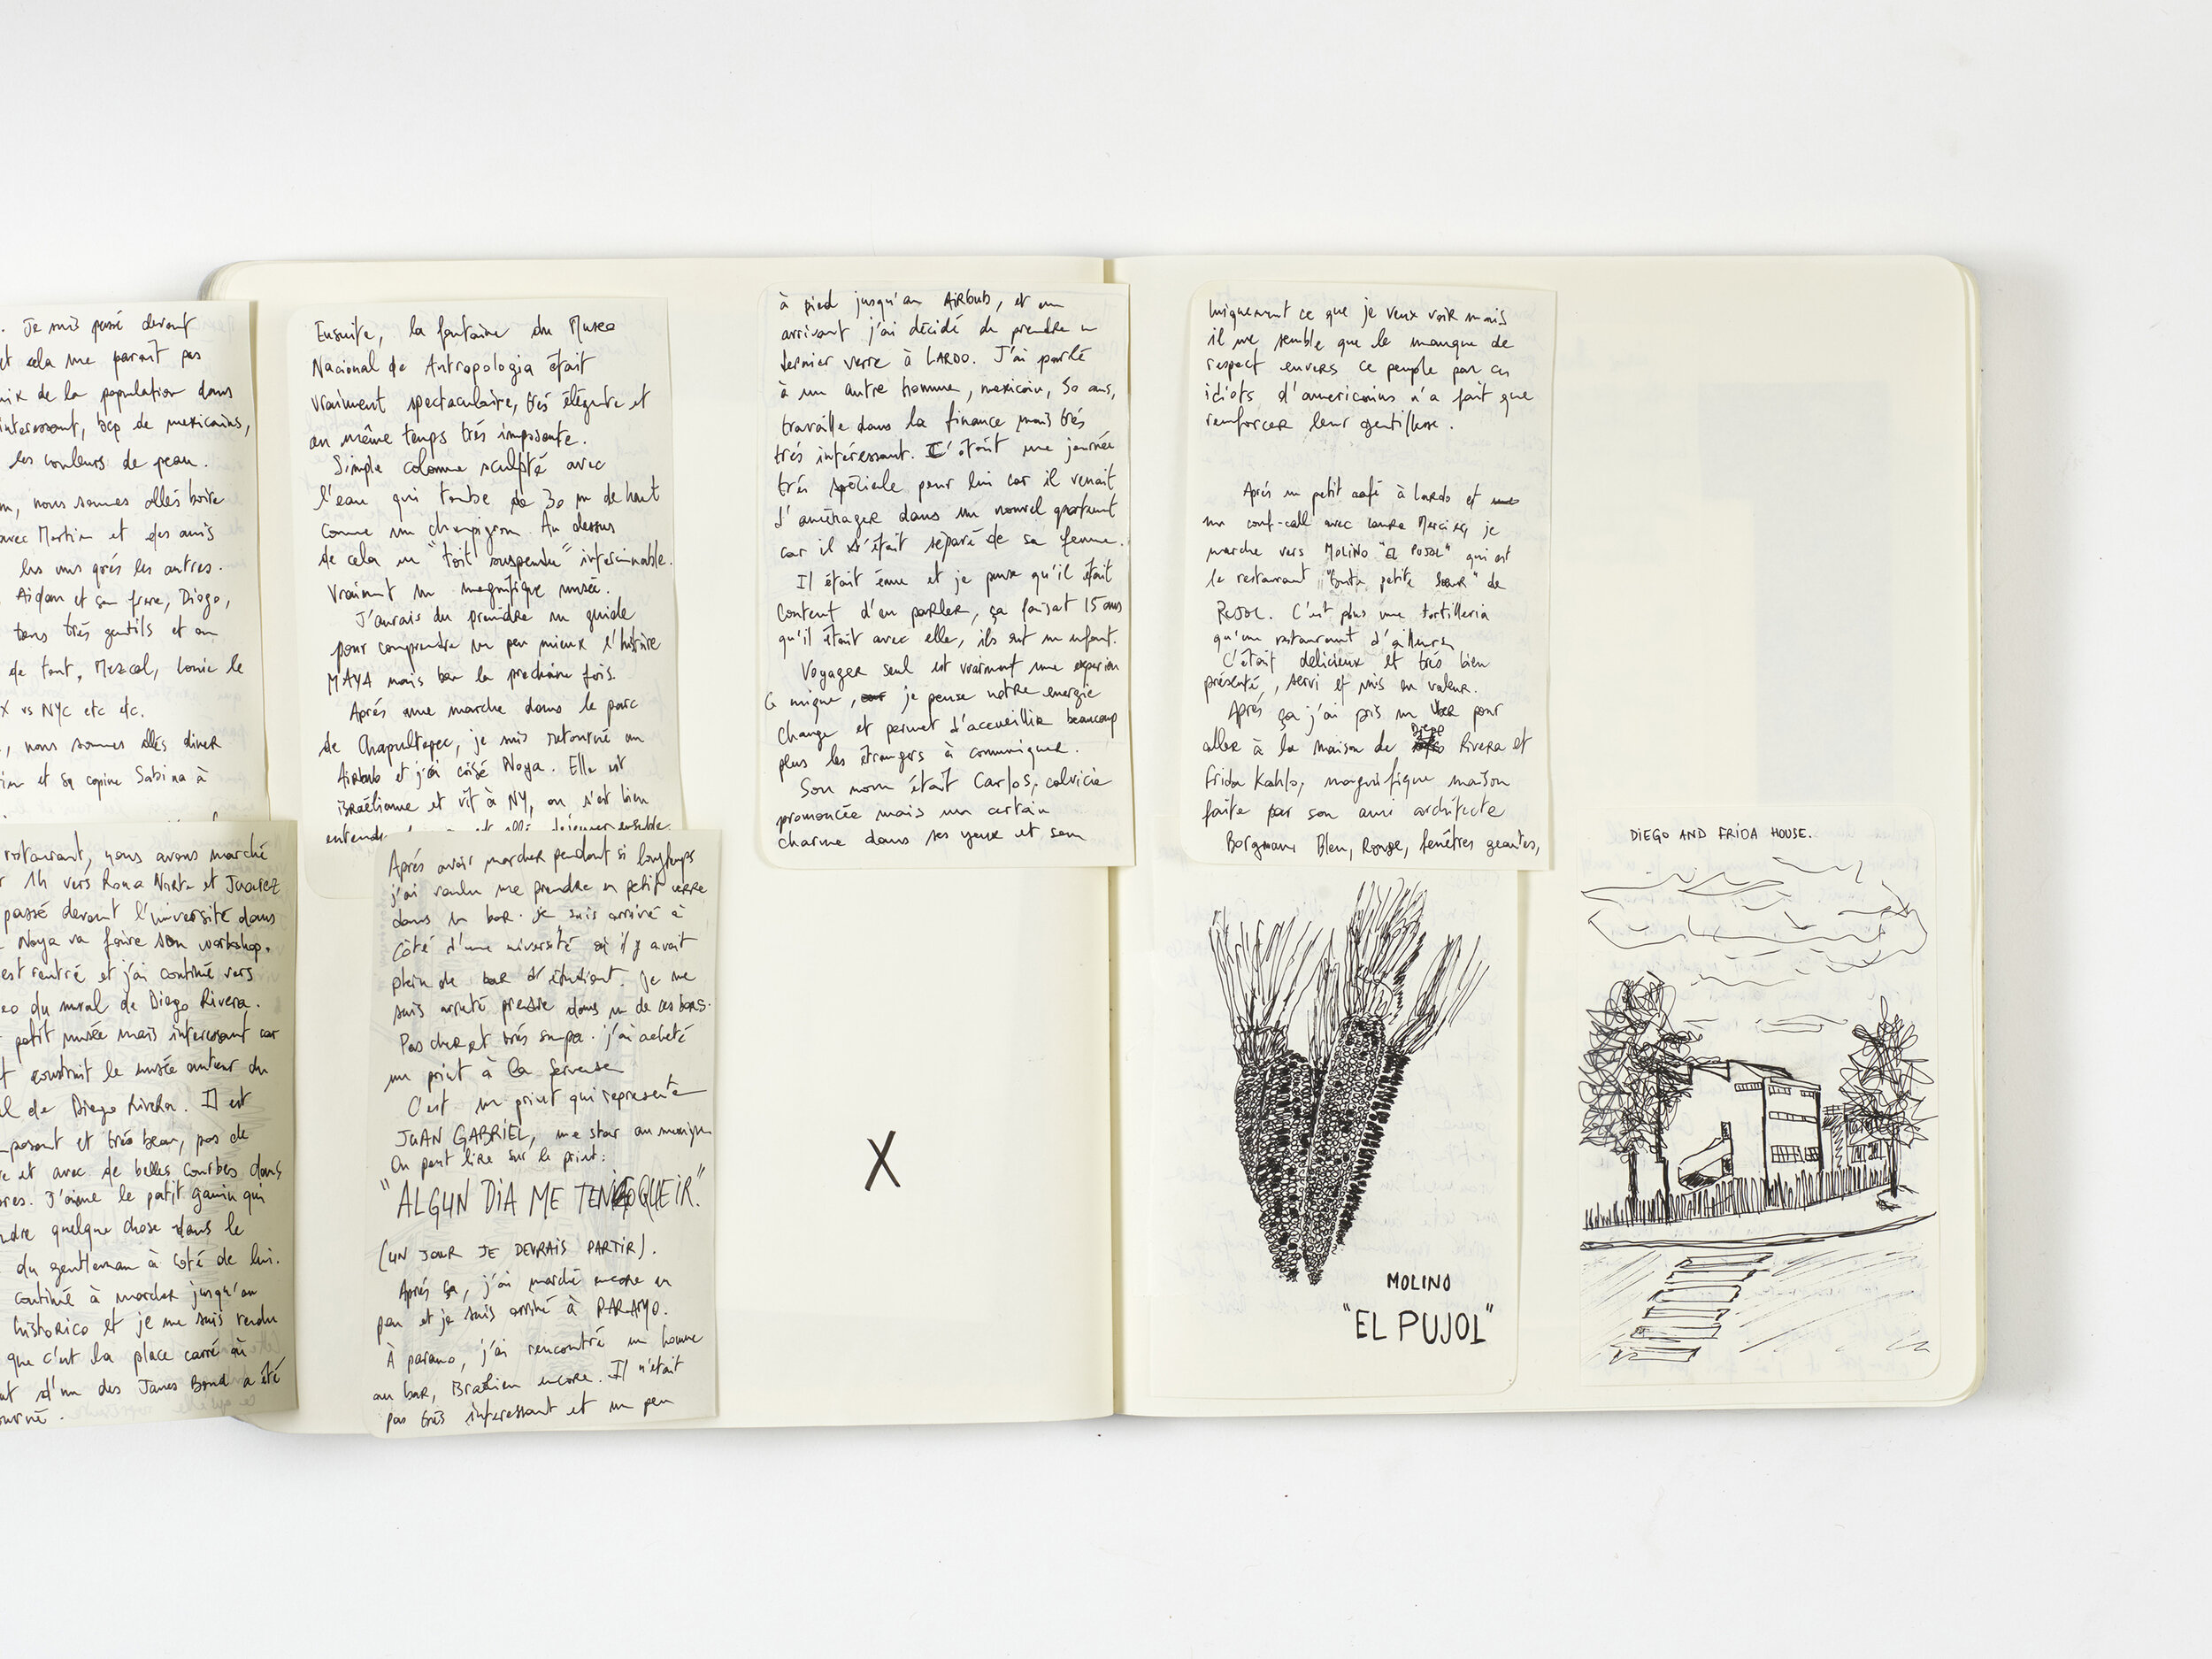 . Je suis passé devant
et cela me parait pas
mix de la population dans
interessant, bcp de mexicains,
les couleurs de peau.
nous sommes allés boire
avec Martin et des amis
les uns après les autres.
Aidan et son frere, Diogo,
tous très gentils et on
de tout, Mezcal, Louie le
X vs NYC etc etc.
, nous sommes allés diner
et sa copine Sabina à
restaurant, nous avons marché
1h vers Roma Norte et Juarez
passé devant l'université dans
Noya va faire son workshop.
est rentré et j'ai continué vers
du mural de Diego Rivera.
petit musée mais interessant car
construit le musée autour du
de Diego Rivera. Il est
et très beau, pas de
et avec de belles courbes dans
J'aime le petit gamin qui
quelque chose dans le
du gentleman à côté de lui.
continué à marcher jusqu'au
historico et je me suis rendu
que c'est la place carré où
d'un des James Bond a été
Ensuite, la fontaine du Museo
Nacional de Antropologia était
vraiment spectaculaire, très élégante et
en même temps très imposante.
Simple colonne sculpté avec
l'eau qui tombe de 30 m de haut
comme un champignon. Au dessus
de cela un "toit suspendu" interminable.
Vraiment un magnifique musée.
J'aurais du prendre un guide
pour comprendre un peu mieux l'histoire
MAYA mais bon la prochaine fois.
Après une marche dans le parc
de Chapultepec, je suis retourné au
Airbnb et j'ai croisé Noya. Elle est
israëlienne et vit à NY, on s'est bien
déjeuner ensemble.
Après avoir marcher pendant si longtemps
j'ai voulu me prendre un petit verre
dans un bar. Je suis arrivé à
côté d'une université où il y avait
plein de bar d'étudiant. Je me
suis arreté prendre dans un de ses bars.
Pas cher et très sympa. j'ai acheté
un print à la serveuse
C'est un print qui represente
JUAN GABRIEL, une star au mexique
On peut lire sur le print:
"ALGUN DIA ME TENGO QUE IR."
(UN JOUR JE DEVRAIS PARTIR).
Après ça, j'ai marché encore un
peu et je suis arrivé à PARAMO.
À paramo, j'ai rencontré un homme
au bar, Brésilien encore. Il n'était
pas très interessant et un peu
à pied jusqu'au AirBnb, et en
arrivant j'ai décidé de prendre un
dernier verre à LARDO. J'ai parlé
à un autre homme, mexicain, 50 ans,
travaille dans la finance mais très
très intéressant. C'était une journée
très spéciale pour lui car il venait
d'aménager dans un nouvel
car il s'était séparé de sa femme.
Il était ému et je pense qu'il était
content d'en parler, ça faisait 15 ans
qu'il était avec elle, ils ont un enfant.
Voyager seul est vraiment une experien
ce unique, je pense notre energie
change et permet d'accueillir beaucoup
plus les étrangers à communiquer.
Son nom était Carlos, calvicie
prononcée mais un certain
charme dans ses yeux et son
X
uniquement ce que je veux voir mais
il me semble que le manque de
respect envers ce peuple par ces
idiots d'americains n'a fait que
renforcer leur gentillesse.
Après un petit café à Lardo et
un conf-call avec Laura Mercier, je
marche vers MOLINO "EL PUJOL" qui est
le restaurant "toute petite soeur" de
PUJOL. C'est plus une tortilleria
qu'un restaurant d'ailleurs
C'était délicieux et très bien
présenté, servi et mis en valeur.
Après ça j'ai pris un Uber pour
aller à la maison de Diego Rivera et
Frida Kahlo, magnifique maison
faite par son ami architecte
Bleu, Rouge, fenêtres geantes,
MOLINO
"EL PUJOL"
DIEGO AND FRIDA HOUSE.